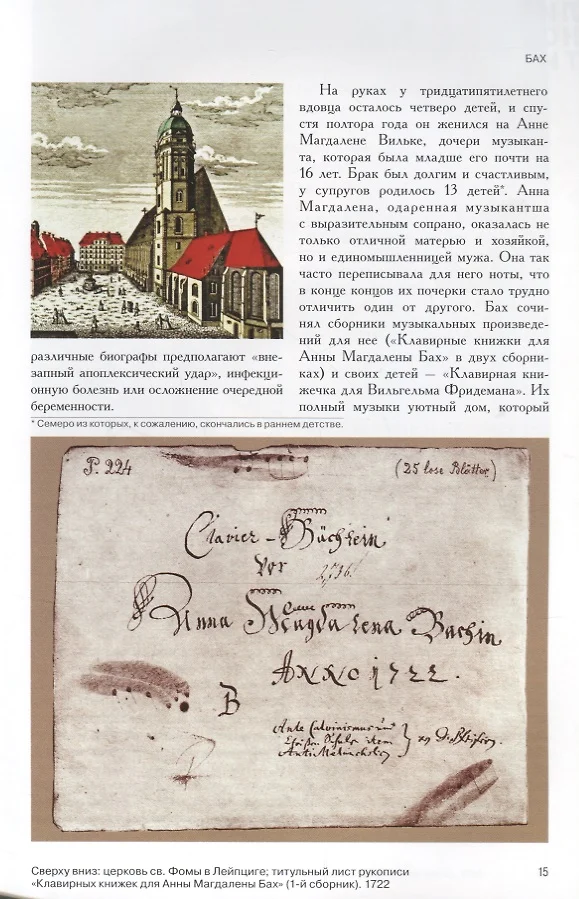 БАХ
различные биографы предполагают «вне-
запный апоплексический удар», инфекци-
онную болезнь или осложнение очередной
беременности.
На руках у тридцатипятилетнего
вдовца осталось четверо детей, и спу-
стя полтора года он женился на Анне
Магдалене Вильке, дочери музыкан-
та, которая была младше его почти на
16 лет. Брак был долгим и счастливым,
у супругов родилось 13 детей*. Анна
Магдалена, одаренная музыкантша
с выразительным сопрано, оказалась не
только отличной матерью и хозяйкой,
но и единомышленницей мужа. Она так
часто переписывала для него ноты, что
в конце концов их почерки стало трудно
отличить один от другого. Бах сочи-
нял сборники музыкальных произведе-
ний для нее («Клавирные книжки для
Анны Магдалены Бах» в двух сборни-
ках) и своих детей — «Клавирная кни-
жечка для Вильгельма Фридемана». Их
полный музыки уютный дом, который
* Семеро из которых, к сожалению, скончались в раннем детстве.
P. 224
(25 lose Blätter)
Clavier-Büchlein
vor
Anna Magdalena Bachin
ANNO 1722.
B
Ante Calvinismus
item
Anti Melancholicus
Сверху вниз: церковь св. Фомы в Лейпциге; титульный лист рукописи
«Клавирных книжек для Анны Магдалены Бах» (1-й сборник). 1722
15